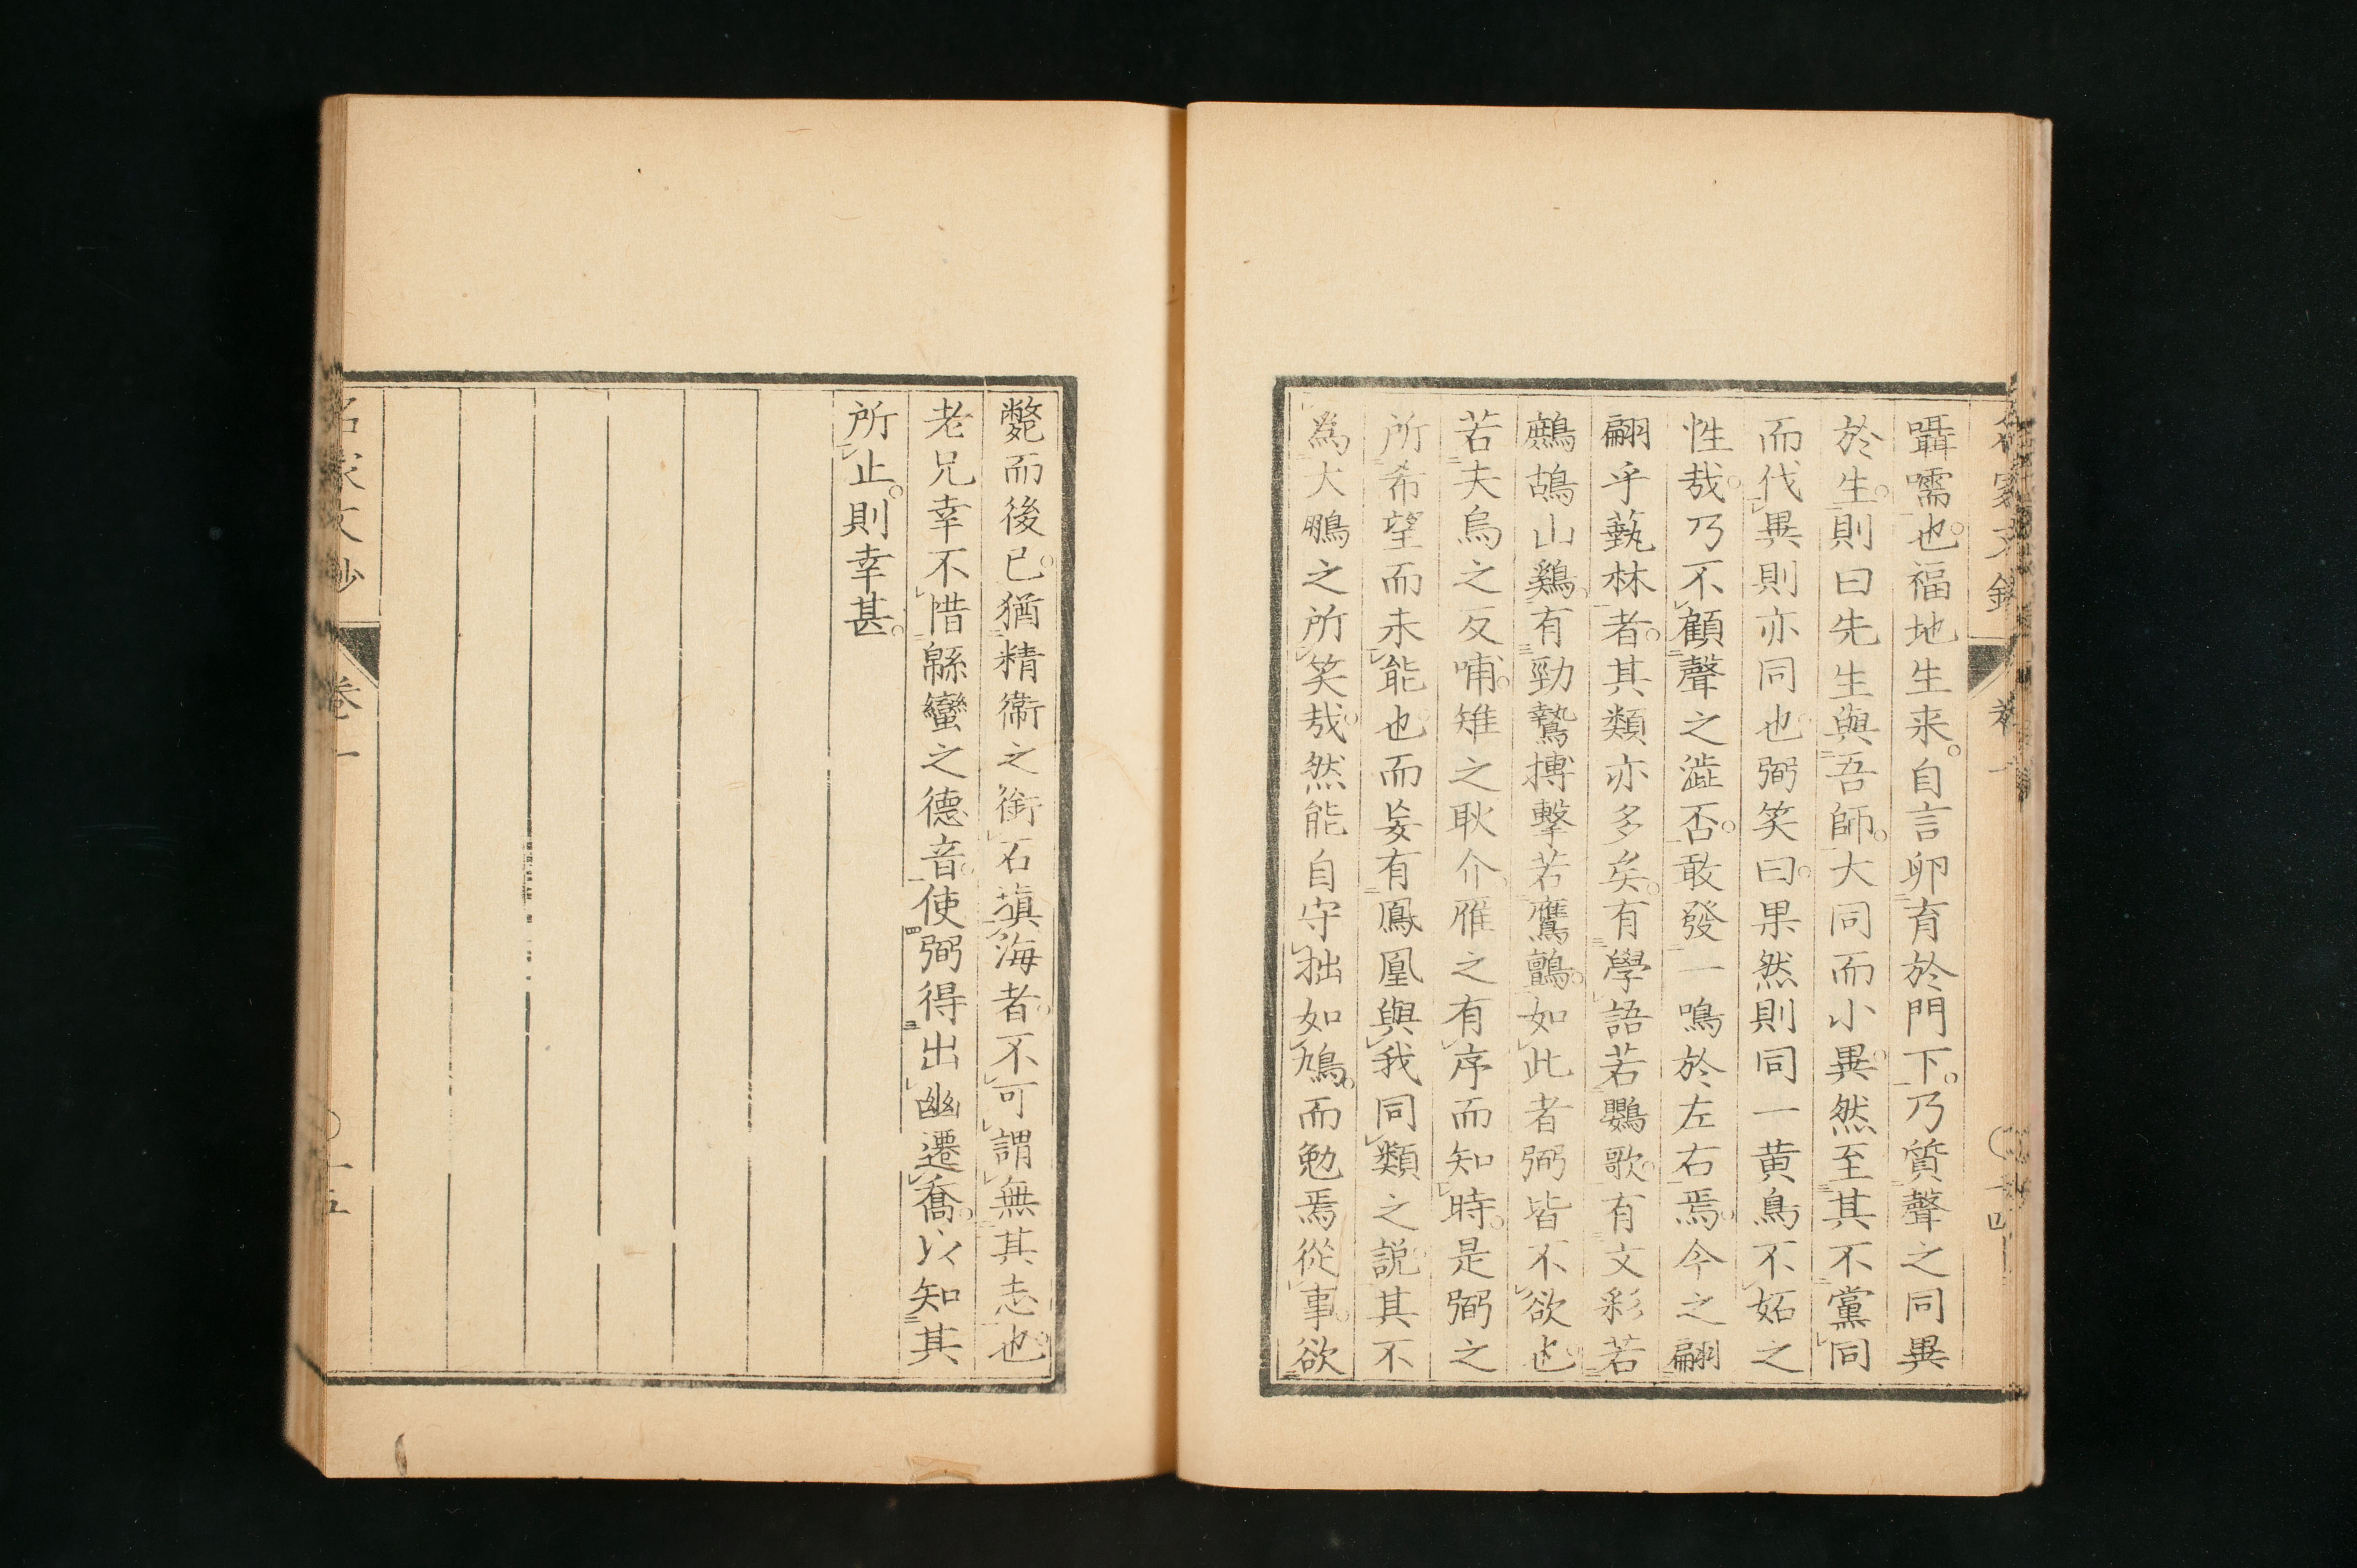 囁嚅也。福地生来。自言卵育於門下。乃質聲之同異
於生。則曰先生與吾師。大同而小異。然至其不黨同
而伐異則亦同也。弼笑曰。果然則同一黄鳥不妬之
性哉。乃不顧聲之澁否。敢發一鳴於左右焉。今之翩
翩乎藝林者。其類亦多矣。有學語若鸚歌。有文彩若
鷓鴣山鷄。有勁鷙搏擊若鷹鸇。如此者弼皆不欲也。
若夫烏之反哺。雉之耿介。雁之有序而知時。是弼之
所希望而未能也。而妄有鳳凰與我同類之説。其不
為大鵬之所笑哉。然能自守拙如鳩。而勉焉從事。欲
斃而後已。猶精衞之銜石塡海者。不可謂無其志也。
老兄幸不惜緜蠻之德音。使弼得出幽遷喬。以知其
所止。則幸甚。
名家文鈔 卷一 十五